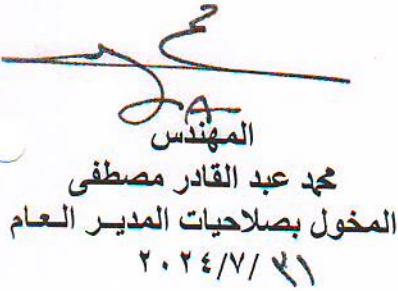 المهندس
محمد عبد القادر مصطفى
المخول بصلاحيات المدير العام
٢٠٢٤/٧/ ٣١